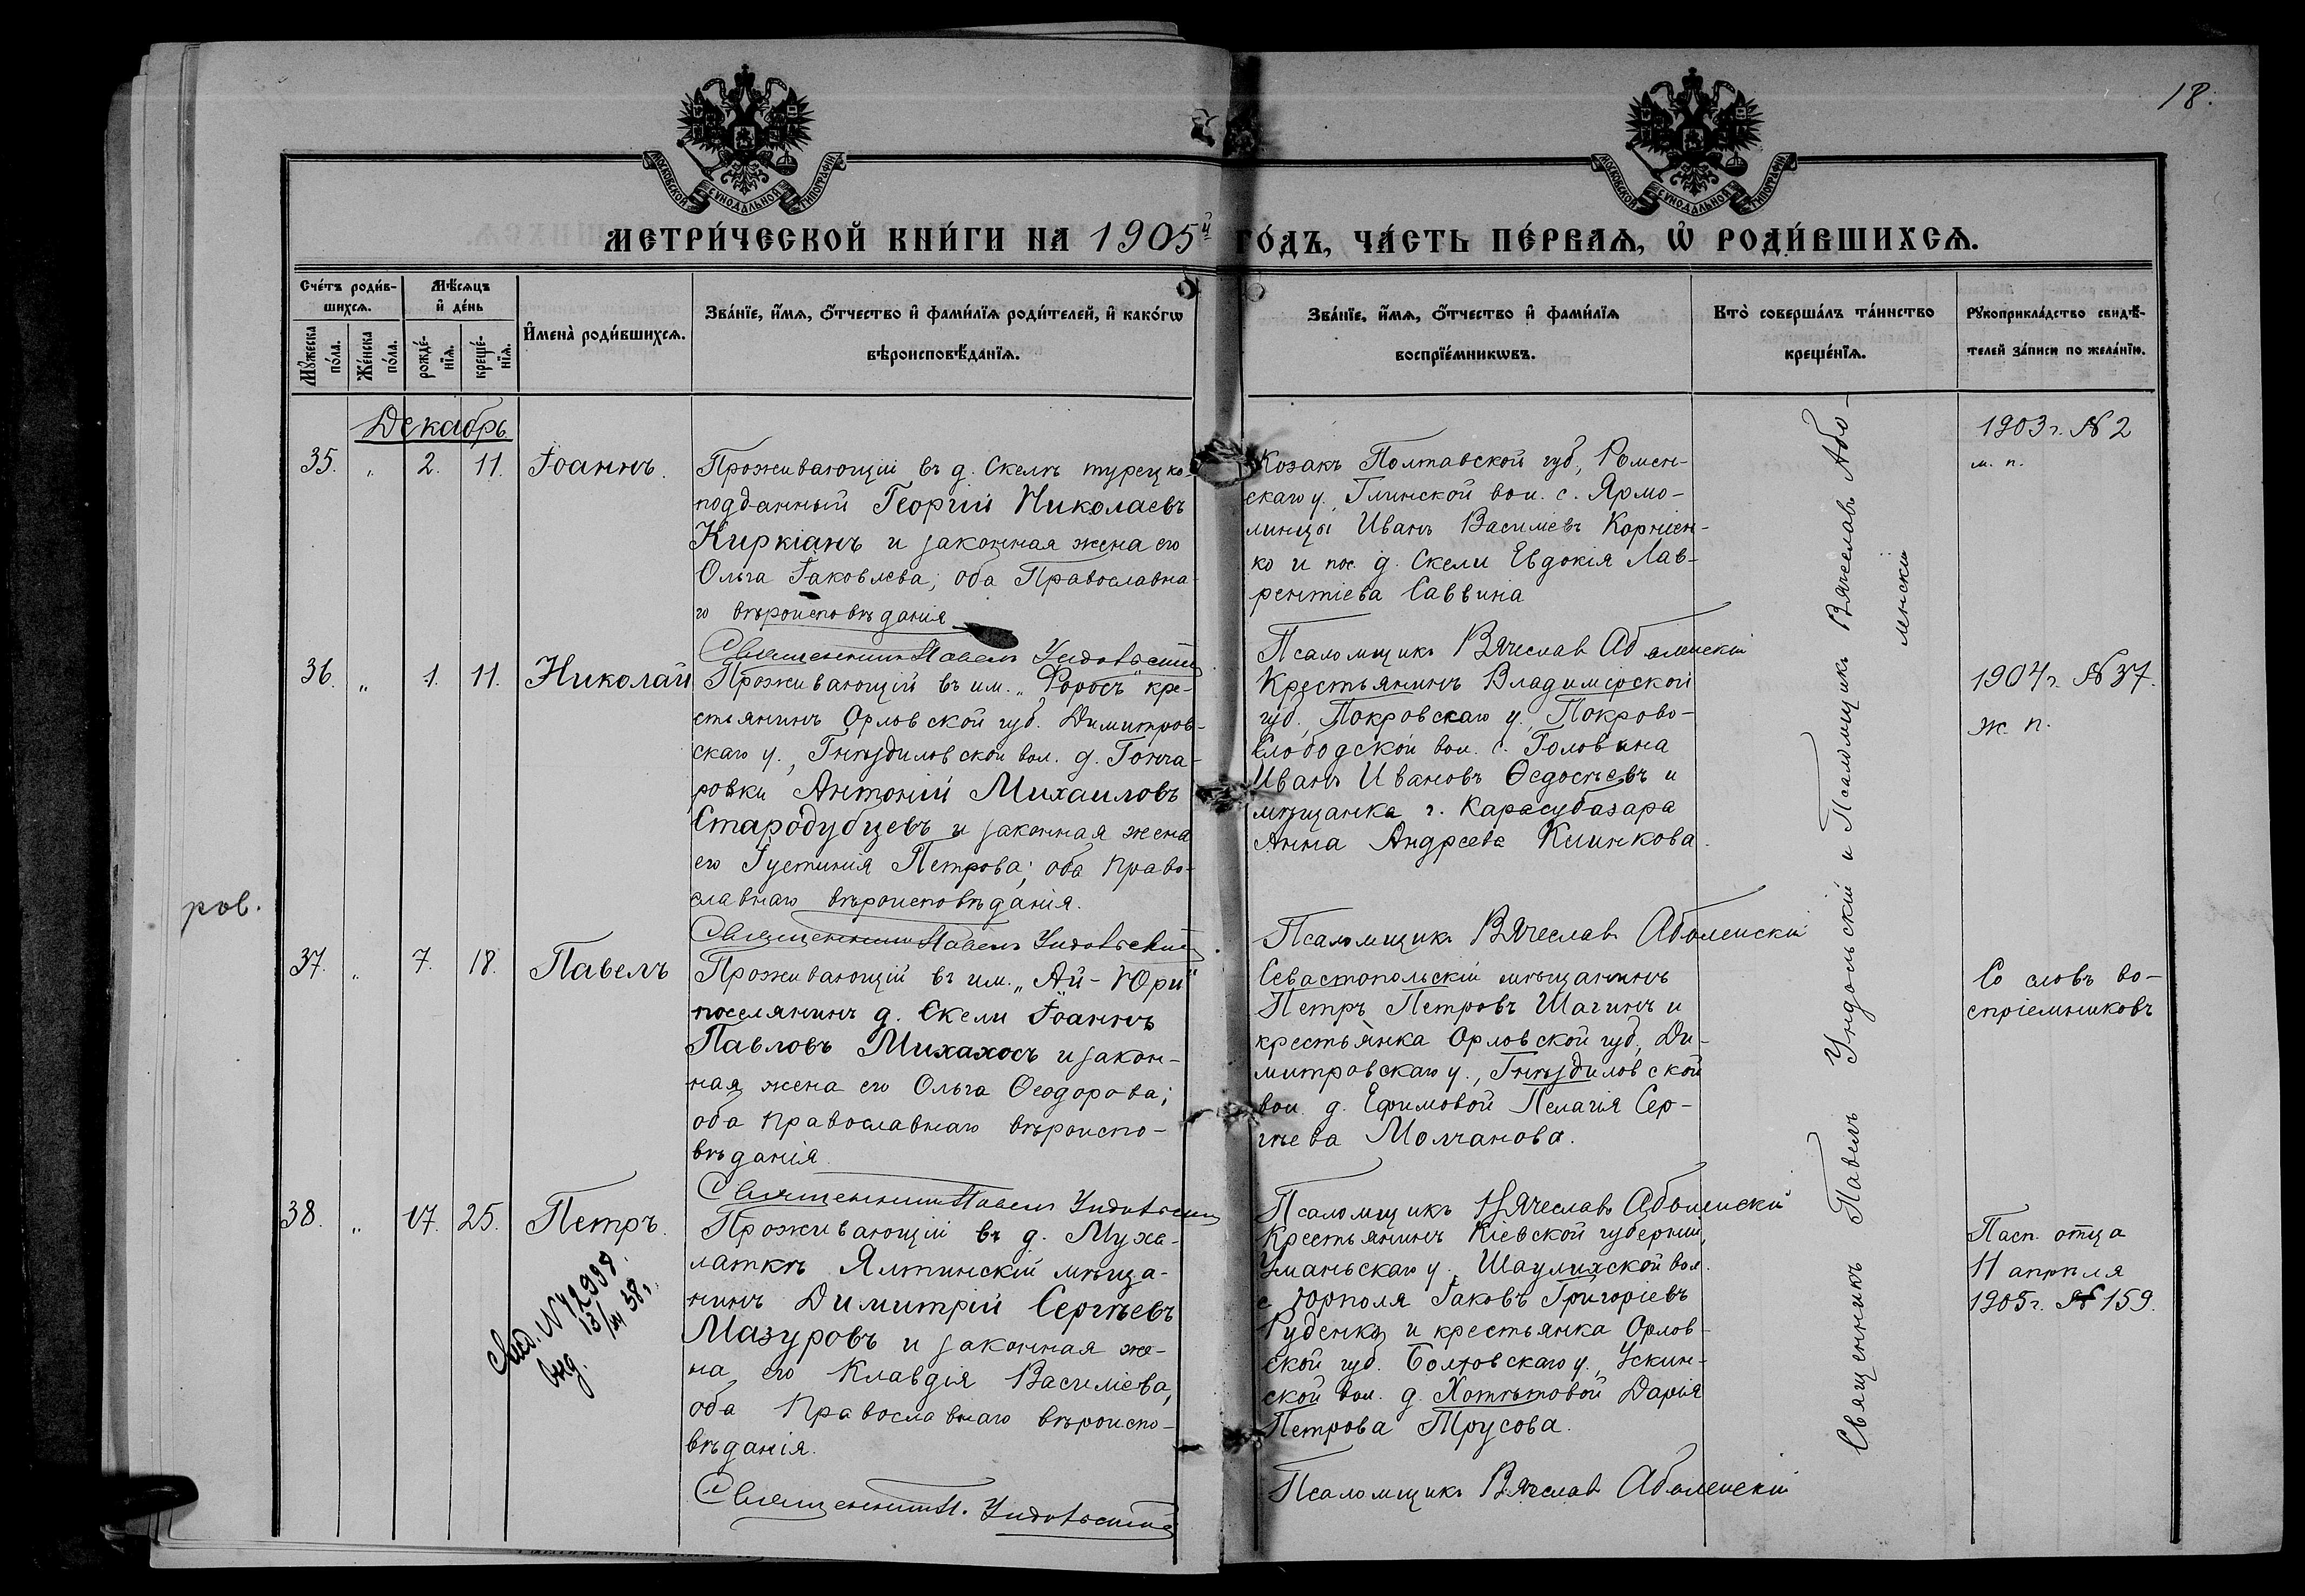 18.
МОСКОВСКОЙ СУНОДАЛЬНОЙ ТИПОГРАФІИ
МОСКОВСКОЙ СУНОДАЛЬНОЙ ТИПОГРАФІИ
МЕТРИ́ЧЕСКОЙ КНИ́ГИ НА 1905й ГО́ДЪ, ЧА́СТЬ ПЕ́РВАѦ, Ѡ҆ РОДИ́ВШИХСѦ.
Сче́тъ роди́в-
шихсѧ.
Мꙋ́жеска по́ла.
Же́нска по́ла.
Мѣ́сѧцъ
и҆ де́нь
рожде́-
нїѧ.
креще́-
нїѧ.
И҆мена̀ роди́вшихсѧ.
Зва́нїе, и҆́мѧ, ѻ҆́тчество и҆ фами́лїѧ роди́телей, и҆ како́гѡ
вѣроисповѣ́данїѧ.
Зва́нїе, и҆́мѧ, ѻ҆́тчество и҆ фами́лїѧ
воспрїе́мникѡвъ.
Кто̀ соверша́лъ та́инство
креще́нїѧ.
Рꙋкоприкла́дство свидѣ́-
телей за́писи по жела́нїю.
Декабрь
35. " 2. 11. Іоаннъ.
Проживающій въ д. Скелѣ турецко-
подданный Георгій Николаевъ
Киркіанъ и законная жена его
Ольга Іаковлева; оба Православна-
го вѣроисповѣданія
Священникъ Павелъ Ундольскій
Козакъ Полтавской губ., Ромен-
скаго у. Глинской вол. с. Ярмо-
линцы Иванъ Василіевъ Корніен-
ко и пос. д. Скели Евдокія Лав-
рентіева Саввина
Псаломщикъ Вячеславъ Аболенскій
1903 г. № 2
м. п.
36. " 1. 11. Николай
Проживающій въ им. „Форосъ" кре-
стьянинъ Орловской губ. Димитров-
скаго у., Гнѣздиловской вол. д. Гонча-
ровки Антоній Михаиловъ
Стародубцевъ и законная жена
его Іустинія Петрова; оба право-
славнаго вѣроисповѣданія.
Священникъ Павелъ Ундольскій
Крестьянинъ Владимірской
губ., Покровскаго у., Покрово-
Слободской вол. с. Головина
Иванъ Ивановъ Ѳедосѣевъ и
мѣщанка г. Карасубазара
Анна Андреева Климкова.
Псаломщикъ Вячеславъ Аболенскій
1904 г. № 37.
ж. п.
ров.
37. " 7. 18. Павелъ
Проживающій въ им. „Ай-Юри"
поселянинъ д. Скели Іоаннъ
Павловъ Михахосъ и закон-
ная жена его Ольга Ѳеодорова;
оба православнаго вѣроиспо-
вѣданія.
Священникъ Павелъ Ундольскій
Севастопольскій мѣщанинъ
Петръ Петровъ Шагинъ и
крестьянка Орловской губ., Ди-
митровскаго у., Гнѣздиловской
вол. д. Ефимовой Пелагія Сер-
гѣева Молчанова.
Псаломщикъ Вячеславъ Аболенскій
Со словъ во-
спріемниковъ
38. " 17. 25. Петръ.
Проживающій въ д. Муха-
латкѣ Ялтинскій мѣща-
нинъ Димитрій Сергѣевъ
Мазуровъ и законная же-
на его Клавдія Василіева,
оба Православнаго вѣроиспо-
вѣданія.
Священникъ П. Ундольскій
Крестьянинъ Кіевской губерніи,
Уманьскаго у., Шаулихской вол.
с. Юрполя Іаковъ Григоріевъ
Руденко и крестьянка Орлов-
ской губ. Болховскаго у., Ускин-
ской вол. д. Хотѣтовой Дарія
Петрова Трусова.
Псаломщикъ Вячеславъ Аболенскій
Пасп. отца
11 апрѣля
1905 г. № 159.
Священникъ Павелъ Ундольскій и Псаломщикъ Вячеславъ Або-
ленскій